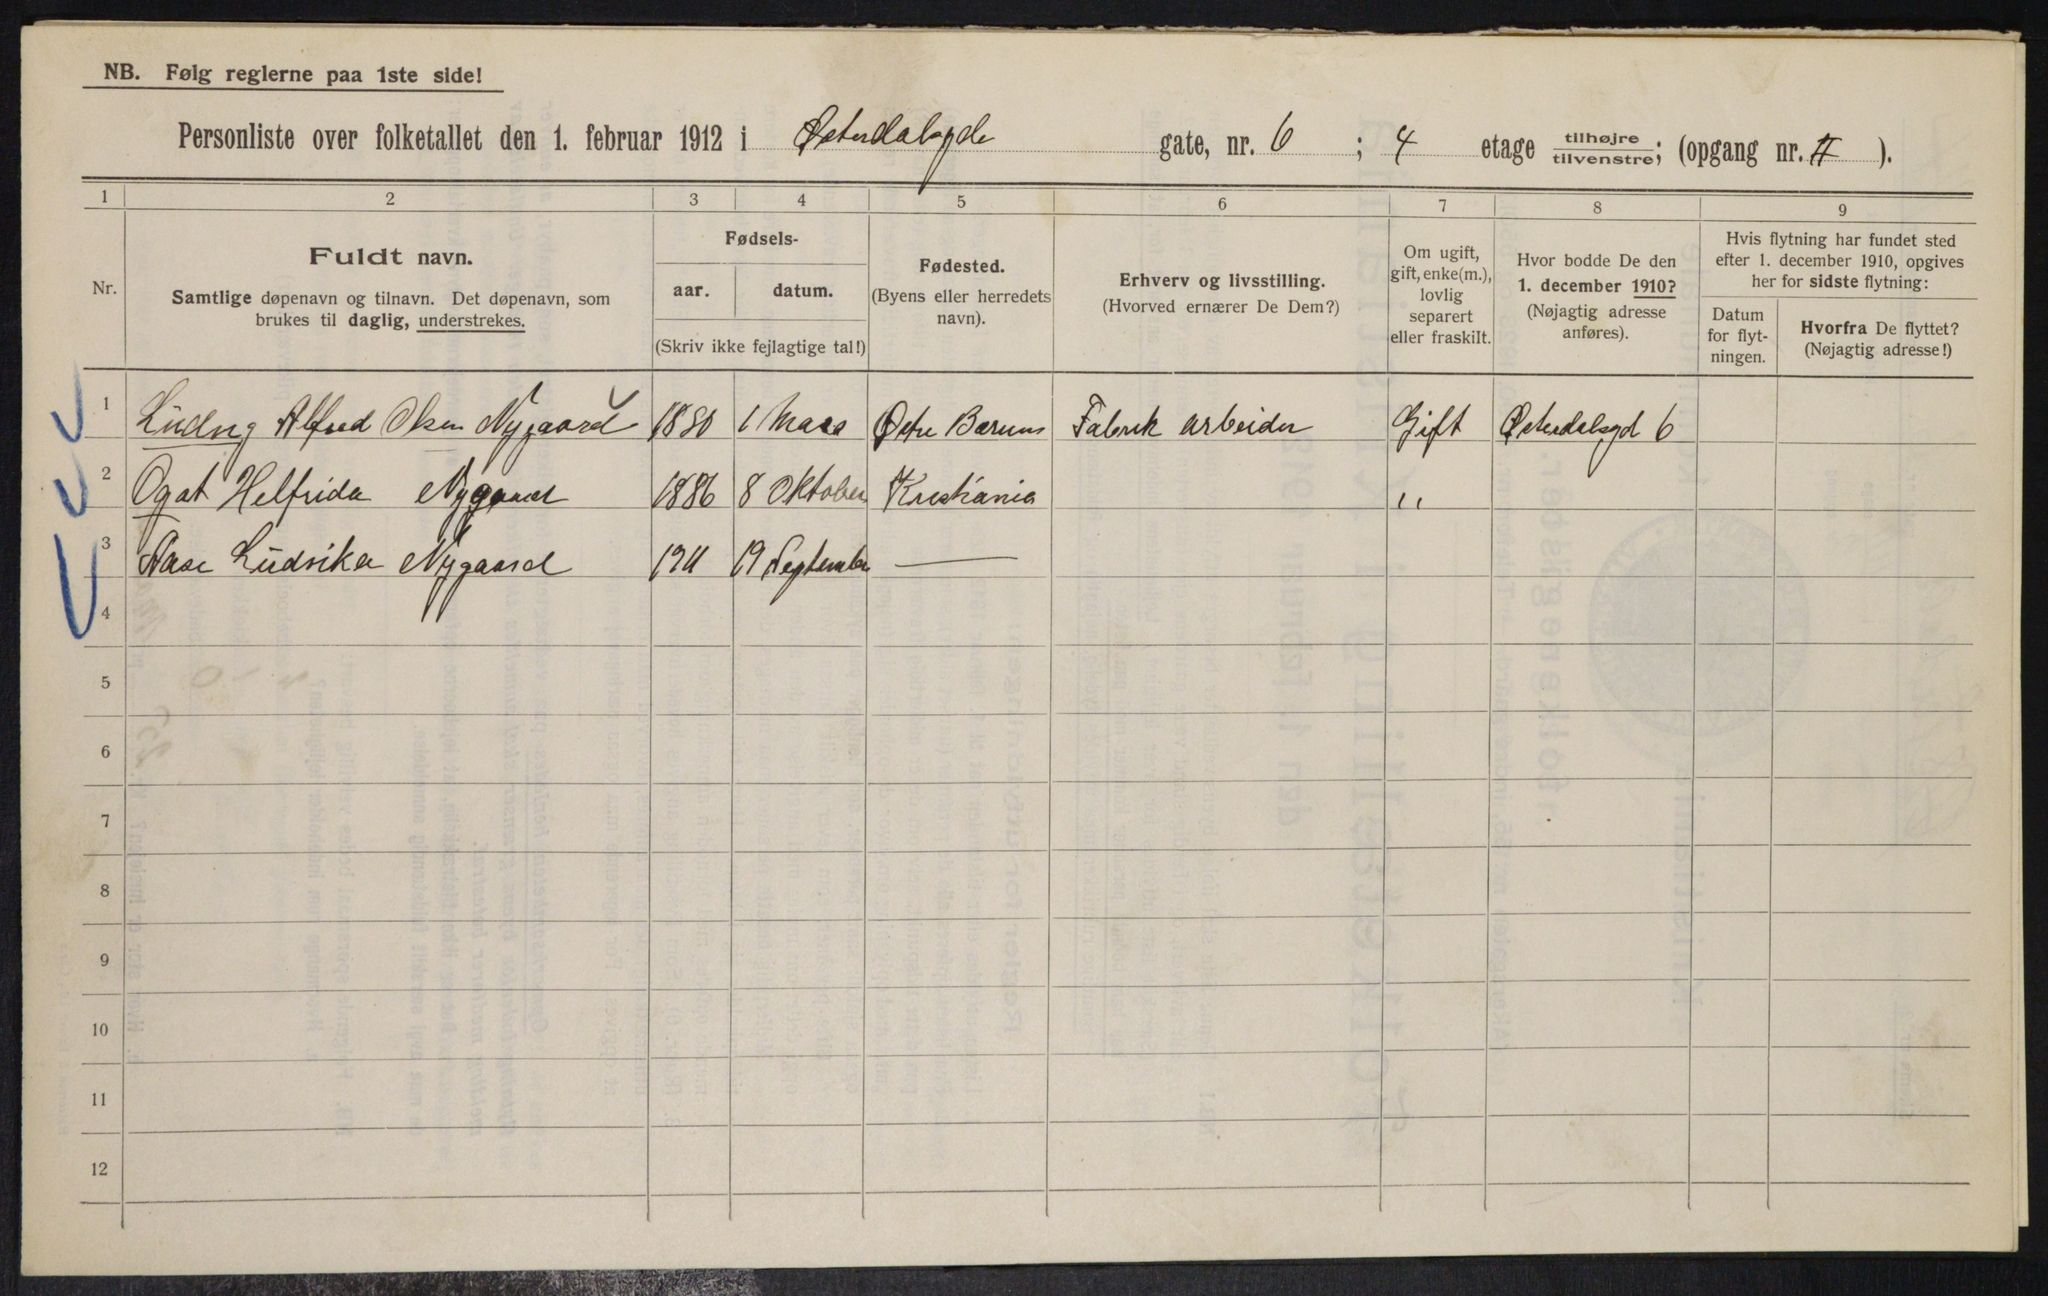 NB. Følg reglerne paa 1ste side!
Personliste over folketallet den 1. februar 1912 i Østerdalsgde gate, nr. 6 ; 4 etage tilhøjre tilvenstre; (opgang nr. II ).
1 2 3 4 5 6 7 8 9
Nr.
Fuldt navn.
Samtlige døpenavn og tilnavn. Det døpenavn, som
brukes til daglig, understrekes.
Fødsels-
aar. datum.
(Skriv ikke fejlagtige tal!)
Fødested.
(Byens eller herredets
navn).
Erhverv og livsstilling.
(Hvorved ernærer De Dem?)
Om ugift,
gift, enke(m.),
lovlig
separert
eller fraskilt.
Hvor bodde De den
1. december 1910?
(Nøjagtig adresse
anføres).
Hvis flytning har fundet sted
efter 1. december 1910, opgives
her for sidste flytning:
Datum
for flyt-
ningen.
Hvorfra De flyttet?
(Nøjagtig adresse!)
1 Ludvig Alfred Olsen Nygaard 1880 1 Mars Østre Bærum Fabrik arbeider Gift Østerdalsgd 6
2 Helfrida Nygaard 1886 8 Oktober Kristiania "
3 Aase Ludvika Nygaard 1911 19 September —
4
5
6
7
8
9
10
11
12